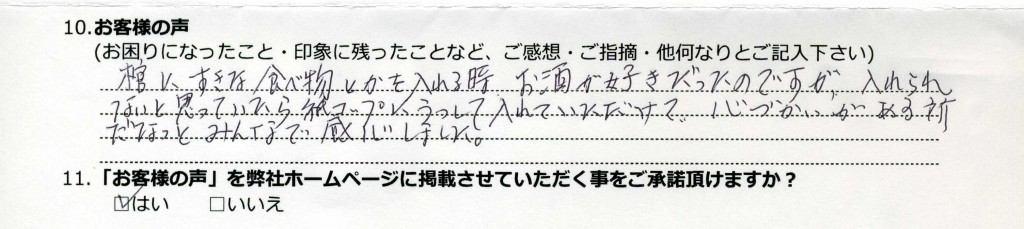 10.お客様の声
(お困りになったこと・印象に残ったことなど、ご感想・ご指摘・他何なりとご記入下さい)
棺に、すきな食べ物とかを入れる時、お酒が好きだったのですが、入れられ
ないと思っていたら紙コップに、うつして入れていただけて、心づかいがある所
だなっと みんなで感心しました。
11.「お客様の声」を弊社ホームページに掲載させていただく事をご承諾頂けますか？
☑はい □いいえ